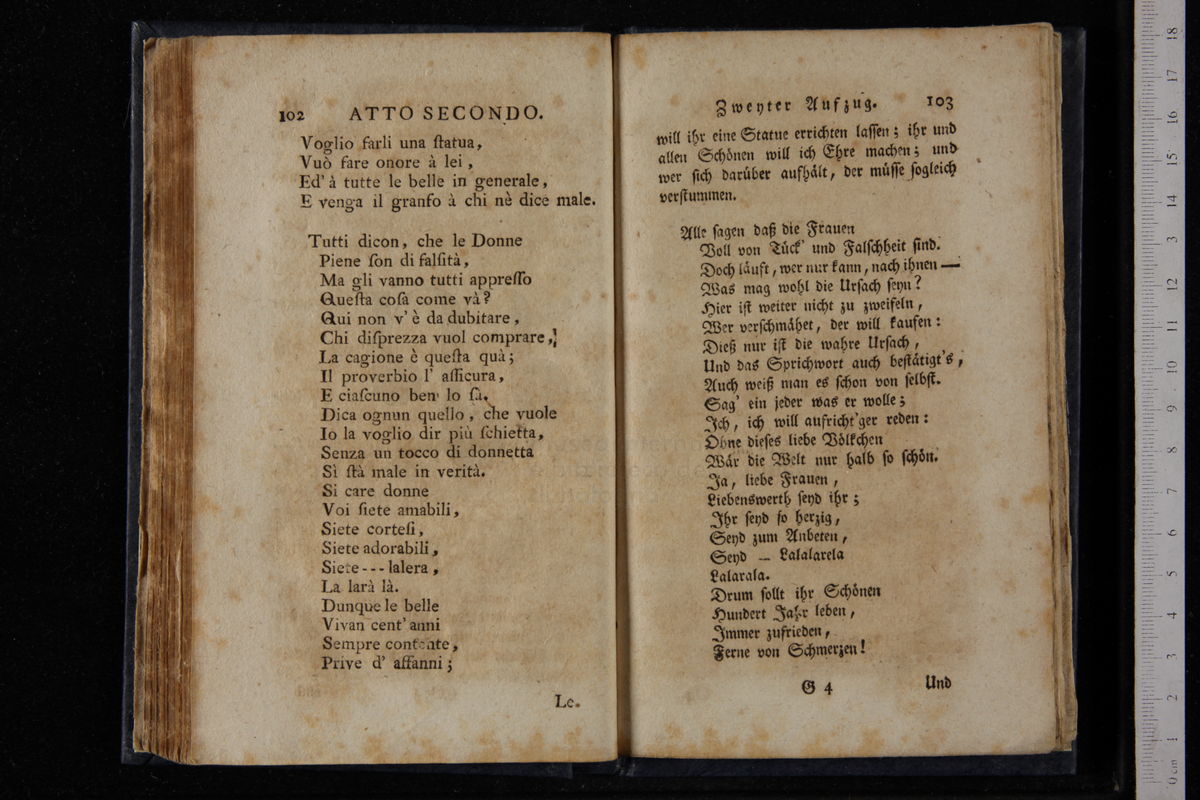 102 ATTO SECONDO.
Voglio farli una ſtatua,
Vuò fare onore à lei,
Ed' à tutte le belle in generale,
E venga il granfo à chi nè dice male.
Tutti dicon, che le Donne
Piene ſon di falſità,
Ma gli vanno tutti appreſſo
Queſta coſa come và?
Qui non v' è da dubitare,
Chi diſprezza vuol comprare,
La cagione è queſta quà;
Il proverbio l' aſſicura,
E ciaſcuno ben lo ſà.
Dica ognun quello, che vuole
Io la voglio dir più ſchietta,
Senza un tocco di donnetta
Si ſtà male in verità.
Si care donne
Voi ſiete amabili,
Siete corteſi,
Siete adorabili,
Siete --- lalera,
La larà là.
Dunque le belle
Vivan cent' anni
Sempre contente,
Prive d' affanni;
Le.
Zweyter Aufzug. 103
will ihr eine Statue errichten laſſen; ihr und
allen Schönen will ich Ehre machen; und
wer ſich darüber aufhält, der müſſe ſogleich
verſtummen.
Alle ſagen daß die Frauen
Voll von Tück' und Falſchheit ſind.
Doch läuft, wer nur kann, nach ihnen —
Was mag wohl die Urſach ſeyn?
Hier iſt weiter nicht zu zweifeln,
Wer verſchmähet, der will kaufen:
Dieß nur iſt die wahre Urſach,
Und das Sprichwort auch beſtätigt's,
Auch weiß man es ſchon von ſelbſt.
Sag' ein jeder was er wolle;
Ich, ich will aufricht'ger reden:
Ohne dieſes liebe Völkchen
Wär die Welt nur halb ſo ſchön.
Ja, liebe Frauen,
Liebenswerth ſeyd ihr;
Ihr ſeyd ſo herzig,
Seyd zum Anbeten,
Seyd — Lalalarela
Lalarala.
Drum ſollt ihr Schönen
Hundert Jahr leben,
Immer zufrieden,
Ferne von Schmerzen!
G 4 Und
0 cm 1 2 3 4 5 6 7 8 9 10 11 12 13 14 15 16 17 18